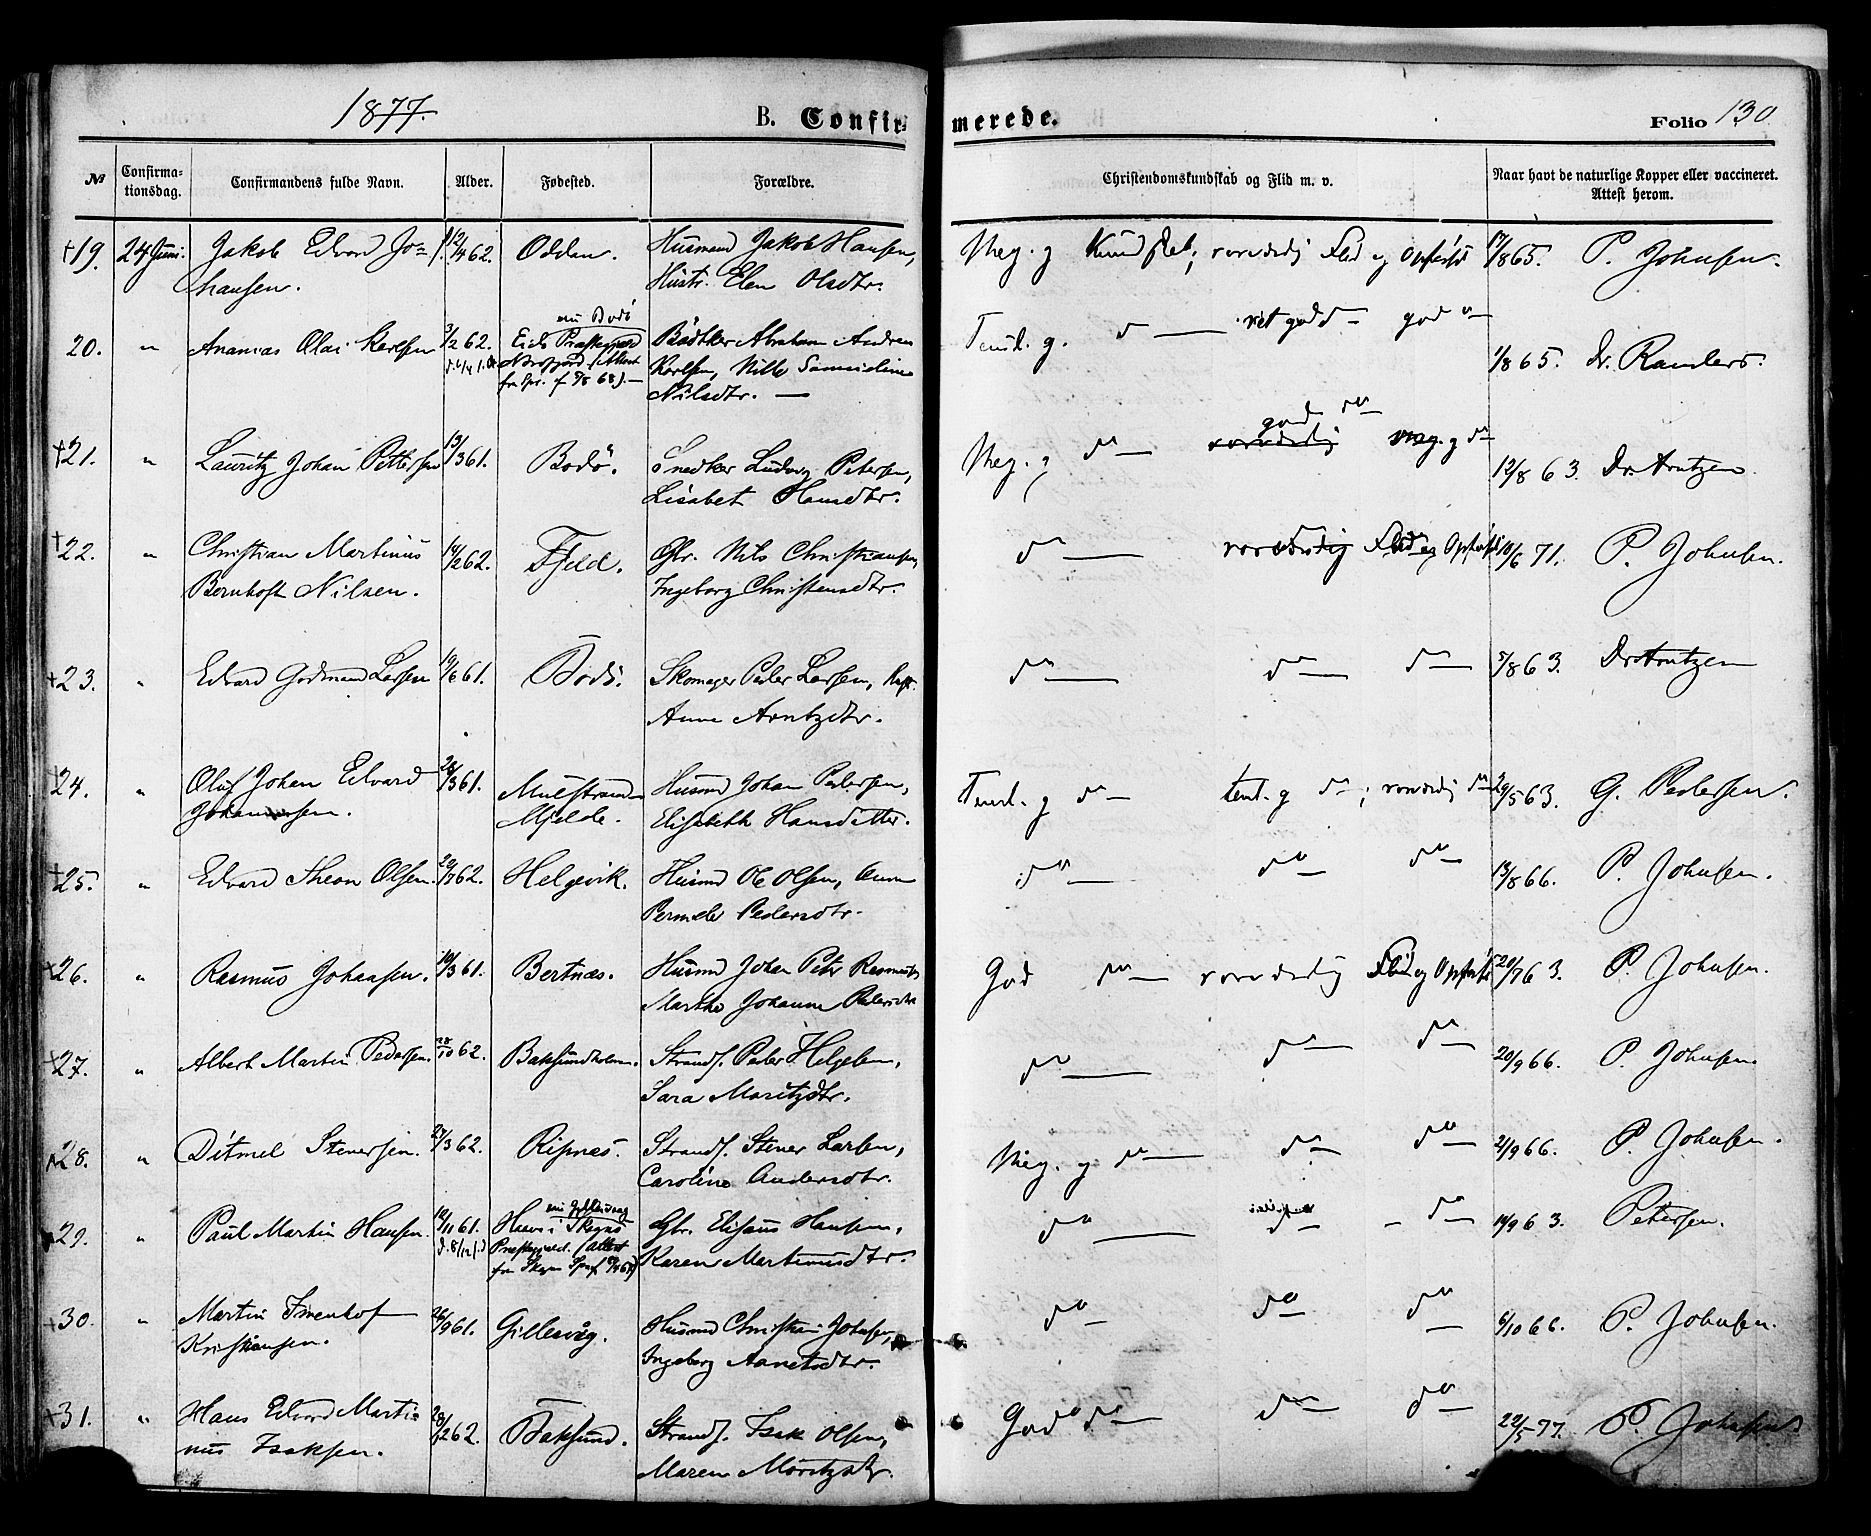 1877.
B. Confir-
merede.
Folio 130
№
Confirma-
tionsdag.
Confirmandens fulde Navn.
Alder.
Fødested.
Forældre.
Christendomskundskab og Flid m. v.
Naar havt de naturlige Kopper eller vaccineret.
Attest herom.
19. 24 Juni. Jakob Edvard Jo- 12/4 62. Oddan. Husmand Jakob Hansen,
hansen. Hustr. Elen Olsdtr.
Meg. g Kundskab; rosværdig Flid og Opførsel 17/8 65. P. Johnsen.
20. " Ananias Olai Karlsen 3/2 62. Præstegjeld
nu Bodö
Bödtker Abraham Andreas
Karlsen,
Nilsdtr.
Temd. g. do ret god do god do 1/8 65. Dr. Randers.
21. " Lauritz Johan Pettersen 13/3 61. Bodö. Snedker Ludvig Petersen,
Lisabet Hansdtr.
Meg. g do god do meg. g do 12/8 63. Dr. Arntzen.
22. " Christian Martinus 14/2 62. Fjeld. Gbr. Nils Christiansen,
Bernhoft Nilsen. Ingeborg Christensdtr.
do rosværdig Flid og Opførsel 10/6 71. P. Johnsen.
23. " Edvard Godmand Larsen 19/6 61. Bodö. Skomager Peder Larsen,
Anne Arntzdtr.
do do do 5/8 63. Dr. Arntzen
24. " Oluf Johan Edvard 28/3 61. Mulstrand
Johannesen. Mjelde.
Husmd Johan Pedersen,
Elisabeth Hansdatter.
Temd. g do temd. g do; rosværdig do 29/5 63. G. Pedersen.
25. " Edvard Theon Olsen. 62. Helgevik. Husmd Ole Olsen, Anne
Pernele Pedersdtr.
do do do 13/8 66. P. Johnsen.
26. " Rasmus Johansen. 10/3 61. Bertnæs. Husmd Johan Peter Rasmus
Marthe Johanna Pedersdtr
God do rosværdig Flid og Opførsel 20/7 63. P. Johnsen.
27. " Albert Martin Pedersen. 28/10 62. Baksundholm. Strands. Peder Helgesen,
Sara Moritzdtr.
do do do 20/9 66. P. Johnsen.
28. " Ditmel Stenersen. 27/3 62. Ripnes. Strands. Stener Larsen,
Caroline Andersdtr.
Meg. g do do do 21/9 66. P. Johnsen.
29. " Paul Martin Hansen. 10/11 61. i
Præstegjeld. (Attest
Gbr. Elisæus Hansen,
Karen Martinusdtr.
do do do 14/9 63. Petersen.
30. " Martin Imenhof 26/9 61. Gillesvåg. Husmd Christian Johnsen,
Kristiansen. Ingeborg Aanetsdtr.
do do do 6/10 66. P. Johnsen.
31. " Hans Edvard Marti- 62. Baksund. Strands. Isak Olsen,
nus Isaksen. Maren Moritzdtr.
God do do do 22/5 77. P. Johnsen